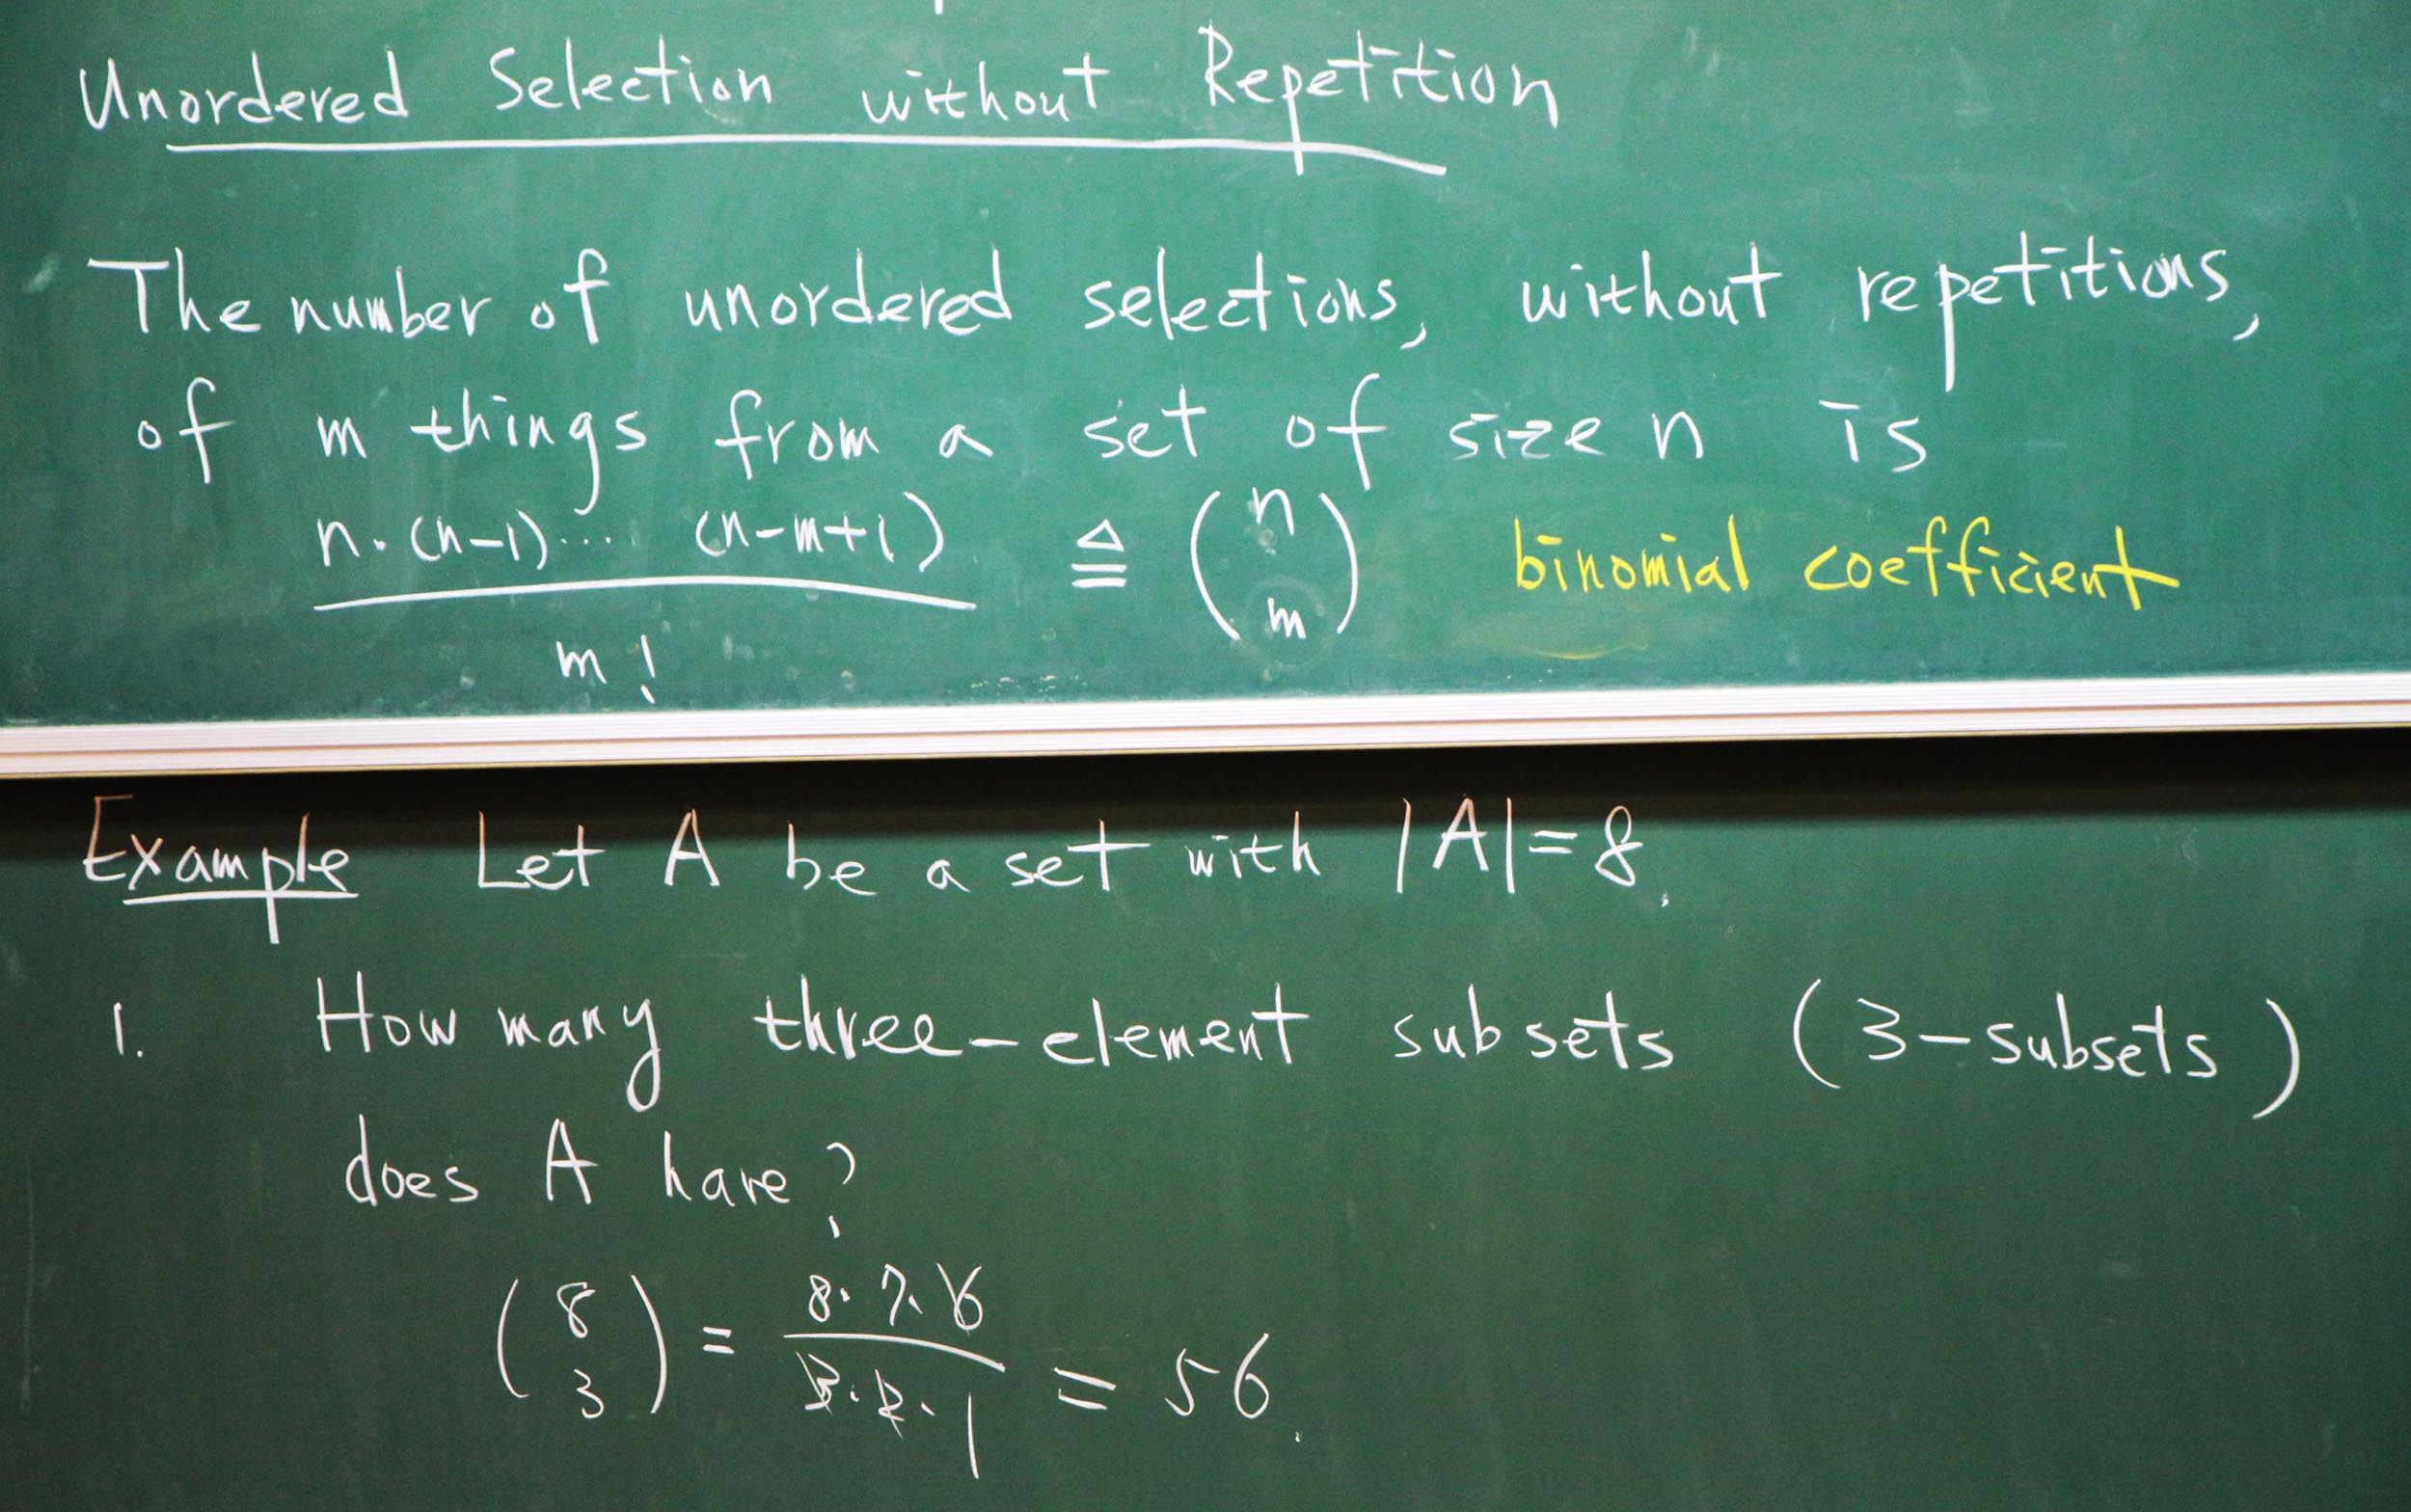 Unordered Selection without Repetition
The number of unordered selections, without repetitions,
of m things from a set of size n is
n·(n-1)···(n-m+1) / m! ≜ (n m) binomial coefficient
Example Let A be a set with |A|=8.
1. How many three-element subsets (3-subsets)
does A have?
(8 3) = 8·7·6 / 3·2·1 = 56.